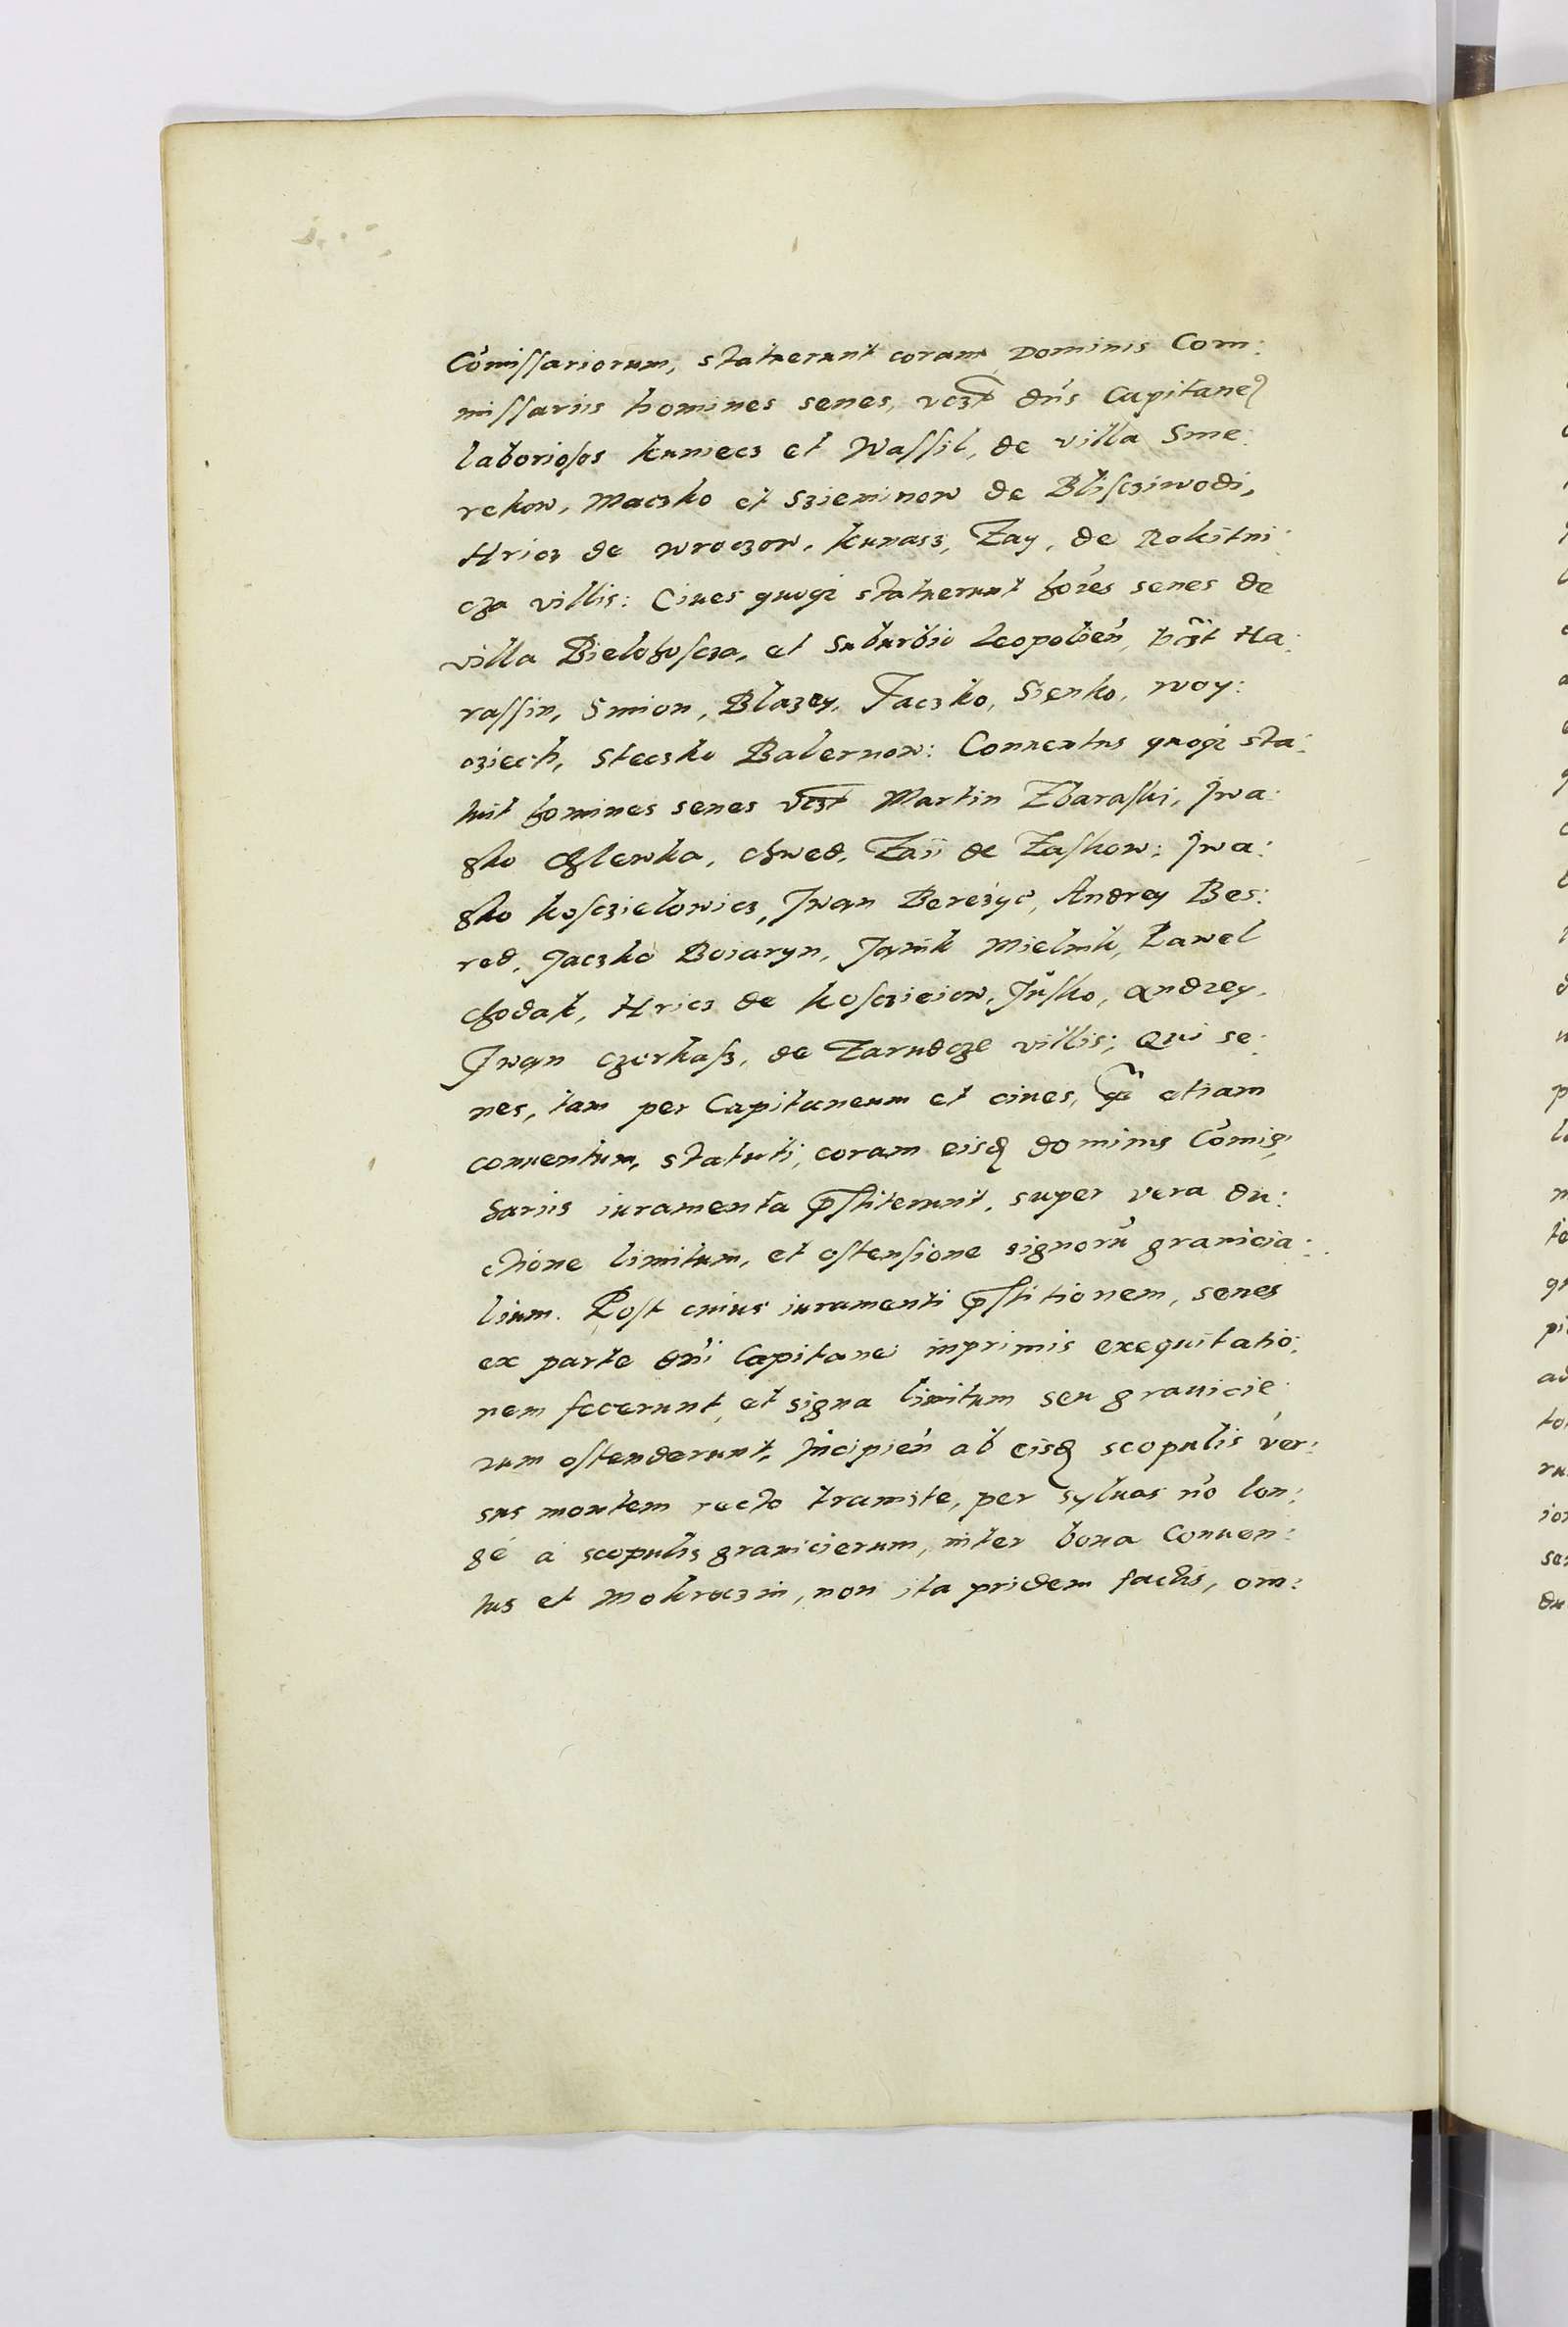 Cōmiſſariorum, statuerunt coram Dominis Com:
miſſariis homines senes, vcꝫt dn̄s Capitaneꝰ
laborioſos kuniecz et Waſſil, de villa Sme:
rekow, Maczko et Szieminow de Bliſcziwodi,
Hricz de wroczow, kunasz, Zay, de Rokitni:
cza villis: Ciues quoqꝫ statuerunt hoīes senes de
villa Bielohoſcza, et Suburbio Leopolień, vcꝫt Ha:
raſſin, Smion, Blazey, Jaczko, Sienko, woy:
cziech, Steczko Balernow: Conuentus quoqꝫ sta:
tuit homines senes vcꝫt Martin Zbaraſki, Jwa:
ſko Chlewka, chwed, Zaii de Zaſkow: Jwa:
ſko koſczielowicz, Jwan Bereżyc, Andrey Bes:
red, Jaczko Boiaryn, Jạnik Mielnik, Pawel
chodak, Hricz de koſczieiow, Juſko, andrey,
Jwan czerkaſz, de Zarudcze villis; Qui se:
nes, tam per Capitaneum et ciues, q̄ȝ etiam
conuentum, statuti, coram eisdꝫ dominis Cōmis:
sariis iuramenta p̄ſtiterunt, super vera du:
ctione limitum, et oſtenſione signorū granicia:
lium. Post cuius iuramenti p̄ſtitionem, senes
ex parte dn̄i Capitanei inprimis exequitatio:
nem fecerunt, et signa limitum seu granicie:
rum oſtenderunt, Jncipień ab eisdꝫ scopulis ver:
sus montem recto tramite, per syluas nō lon:
gè à scopulis granicierum, inter bona Conuen:
tus et Mokroczin, non ita pridem factis, om: